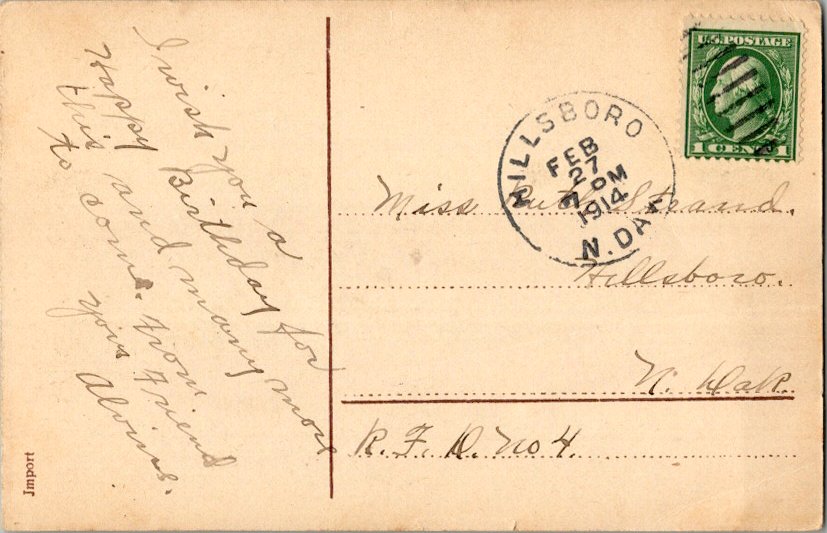 I wish you a
Happy Birthday for
this and many more
to come. from
your Friend
U.S. POSTAGE
1 CENT 1
HILLSBORO
FEB
27
7 PM
1914
N. DAK.
Miss Ruth Strand.
Hillsboro.
N. Dak.
R. F. D. No 4.
Import